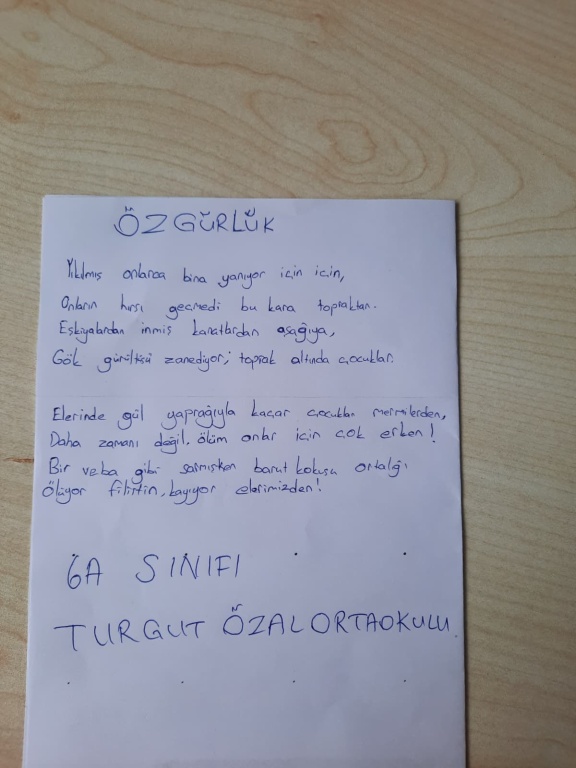 ÖZGÜRLÜK
Yıkılmış onlarca bina yanıyor için için,
Onların hırsı geçmedi bu kara topraktan.
Eşkiyalardan inmiş kanatlardan aşağıya,
Gök gürültüsü zanediyor; toprak altında çocuklar.
Elerinde gül yaprağıyla kaçar çocuklar mermilerden,
Daha zamanı değil. ölüm onlar için çok erken!
Bir veba gibi sarmışken barut kokusu ortalığı
Ölüyor filistin, kayıyor elerimizden!
6A SINIFI
TURGUT ÖZAL ORTAOKULU